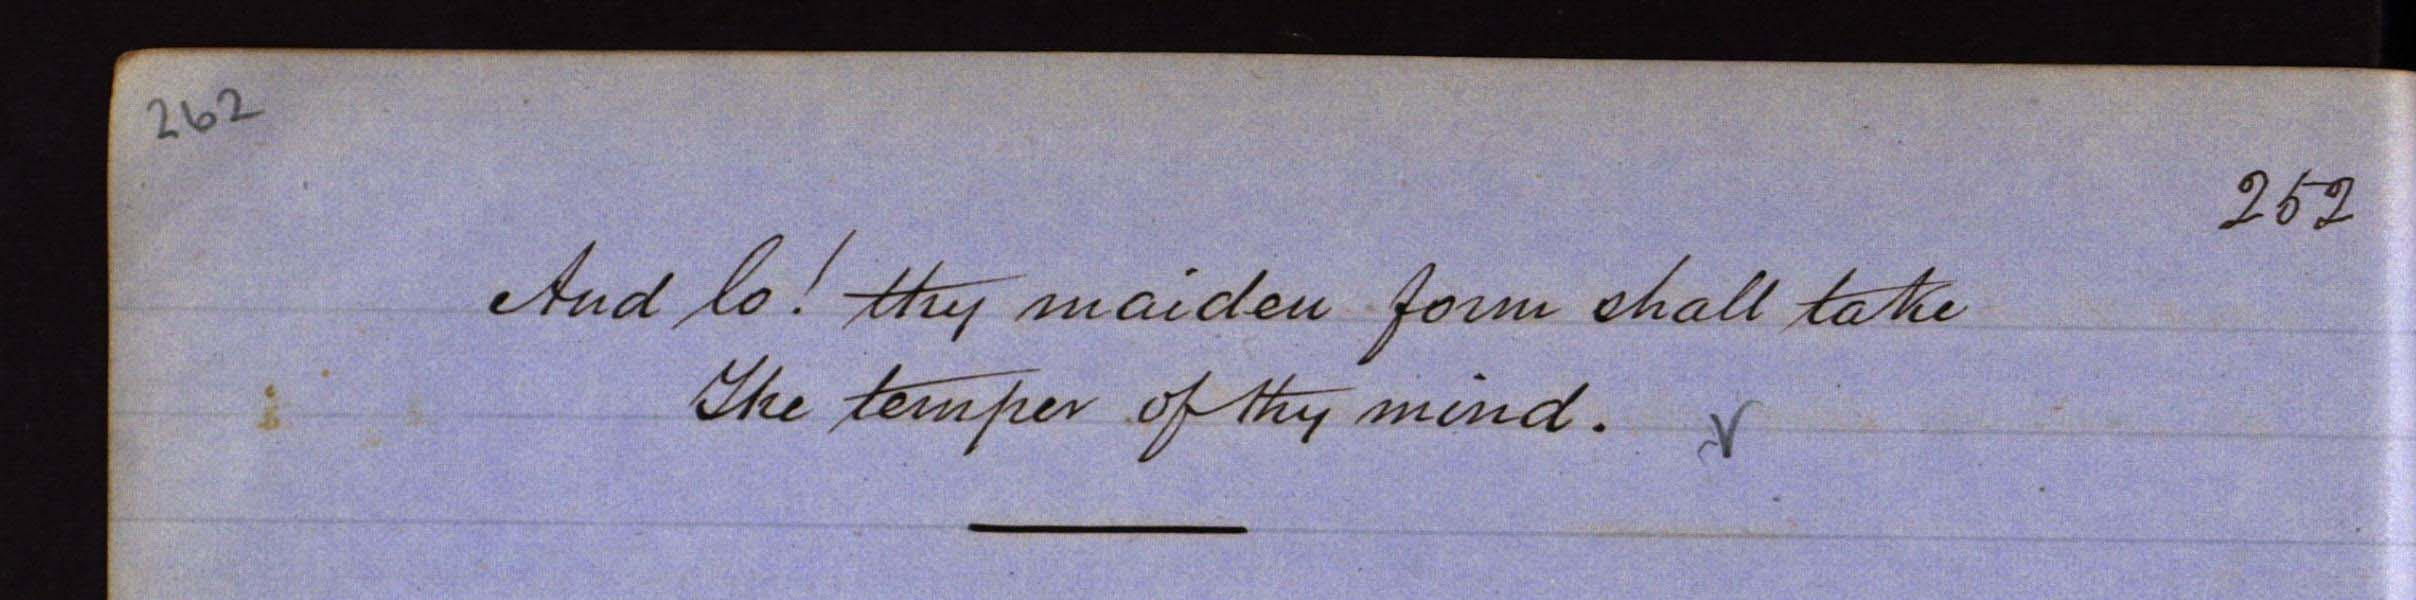 262
252
And lo! thy maiden form shall take
The temper of thy mind.